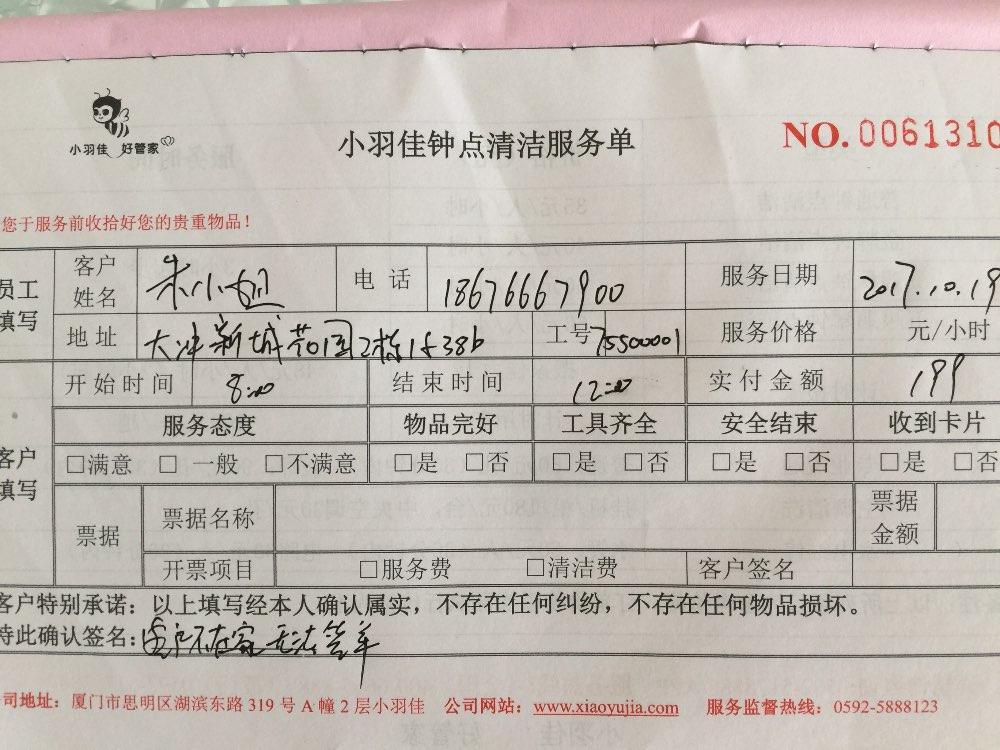 小羽佳 好管家
小羽佳钟点清洁服务单
NO. 0061310
您于服务前收拾好您的贵重物品！
员工填写
客户姓名 朱小姐 电话 18676667900 服务日期 2017.10.19
地址 大冲新城花园2栋1单38b 工号 75500001 服务价格 元/小时
开始时间 8:00 结束时间 12:00 实付金额 199
客户填写
服务态度 物品完好 工具齐全 安全结束 收到卡片
□满意 □一般 □不满意 □是 □否 □是 □否 □是 □否 □是 □否
票据 票据名称 票据金额
开票项目 □服务费 □清洁费 客户签名
客户特别承诺：以上填写经本人确认属实，不存在任何纠纷，不存在任何物品损坏。
特此确认签名：客户不在家无法签单
司地址：厦门市思明区湖滨东路 319 号 A 幢 2 层小羽佳 公司网站：www.xiaoyujia.com 服务监督热线：0592-5888123